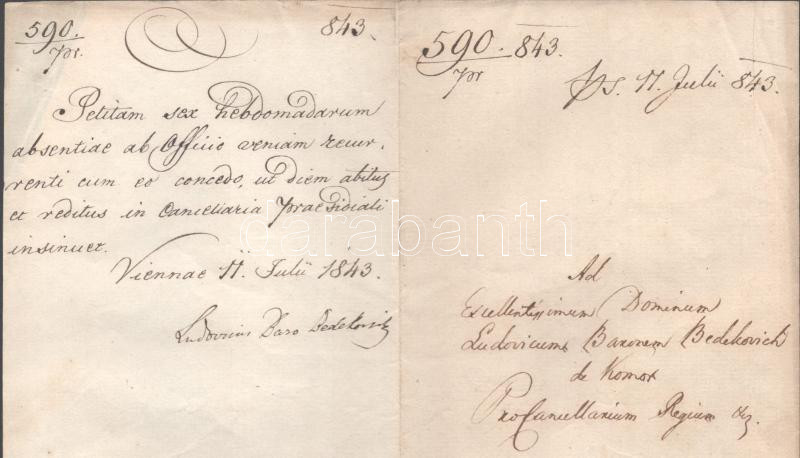 590. 843.
/pr.
Petitam sex hebdomadarum
absentiae ab Officio veniam recur,
renti cum eo concedo, ut diem abitus
et reditus in Cancellaria Praesidiali
insinuet.
Viennae 11. Julii 1843.
Ludovicus Baro Bedekovich
590. 843.
/pr
11 Julii 843.
Ad
Excellentissimum Dominum
Ludovicum Baronem Bedekovich
de Komor
ProCancellarium Regium
darabanth